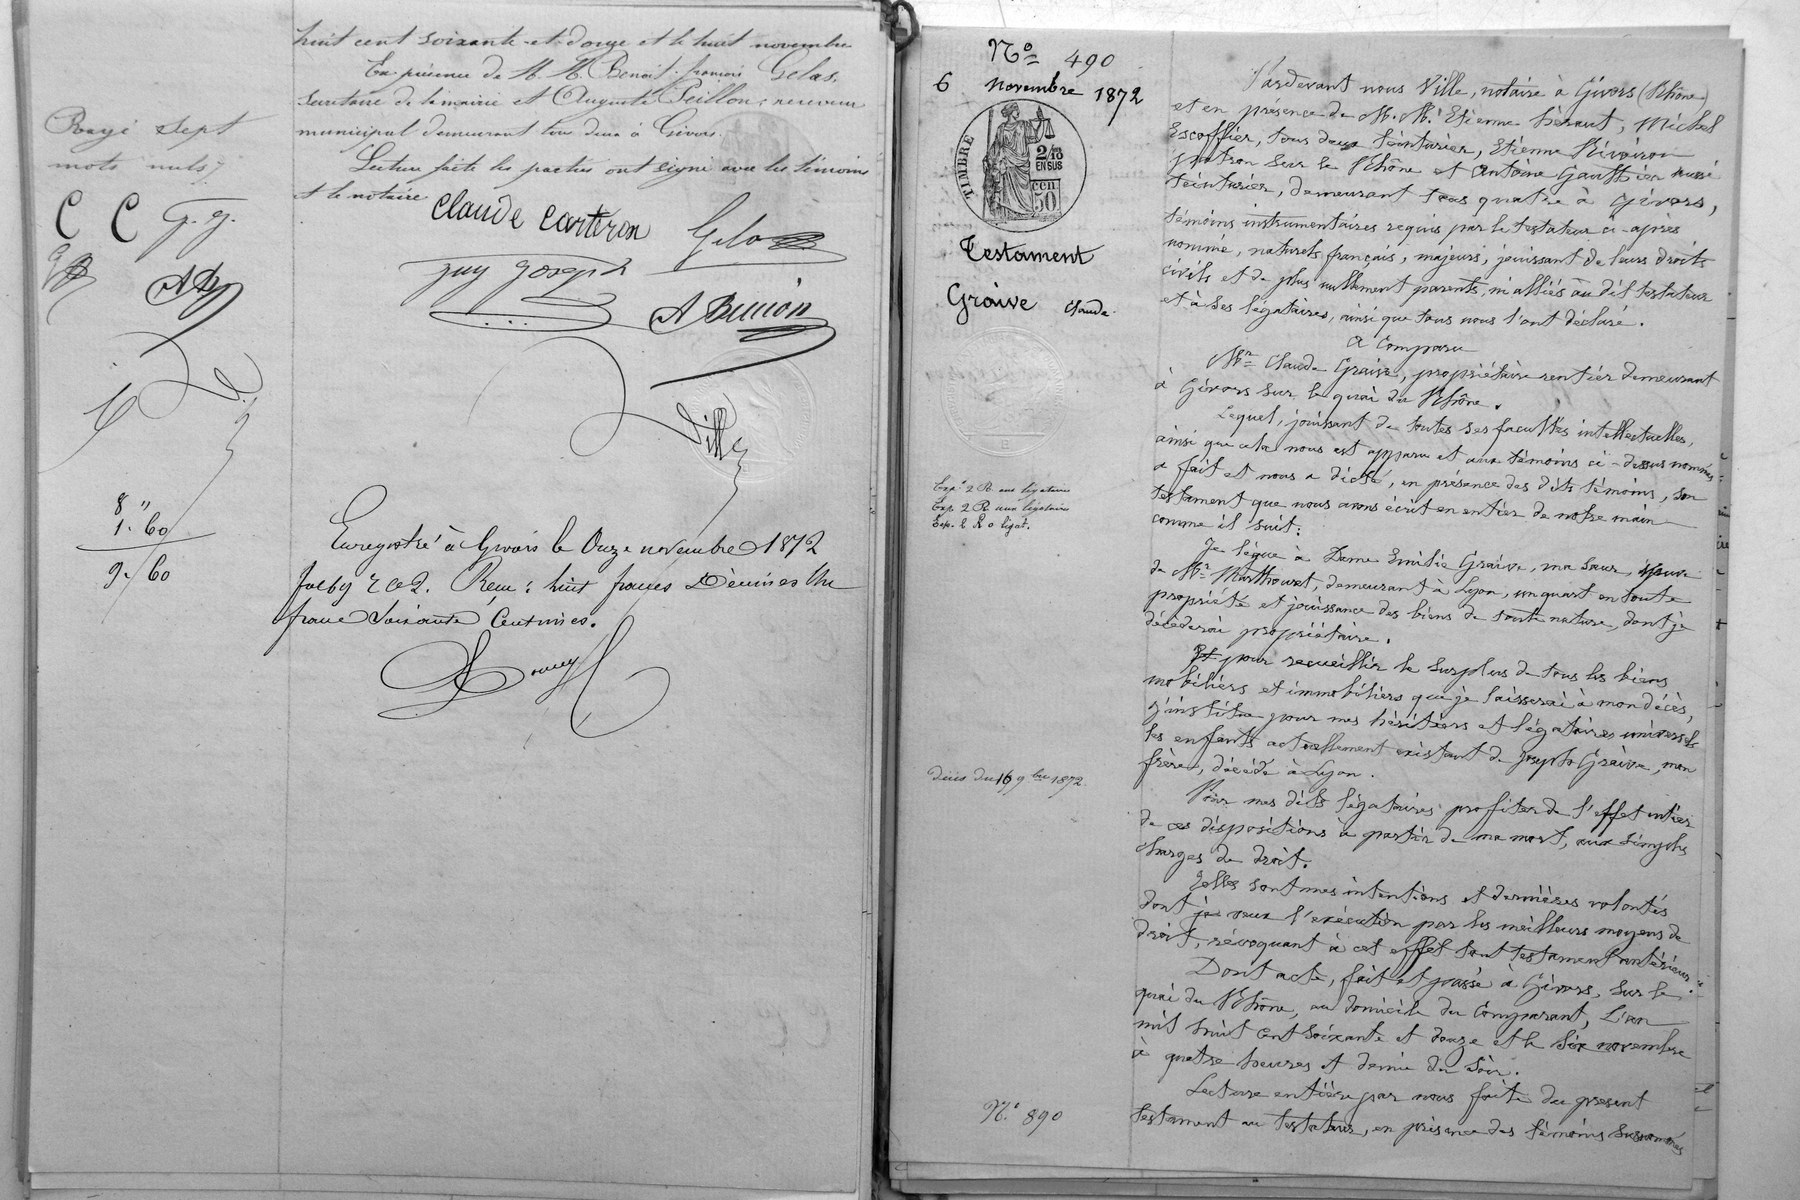 huit cent soixante-et-douze et le huit novembre
En présence de M. M. Benoit-françois Gelas,
secrétaire de la mairie et Auguste Peillon, receveur
municipal demeurant tous deux à Givors.
Lecture faite les parties ont signé avec les témoins
et le notaire
Rayé sept
mots nuls
C C g. g.
Claude Carteron Gelas
guy Joseph
Ville
8 "
1. 60
9. 60
Enregistré à Givors le Onze novembre 1872
folio 9 r c 2. Reçu : huit francs Décimes Un
franc Soixante Centimes.
No 490
6 novembre 1872
TIMBRE
2/10
EN SUS
50 cen
Testament
Graive Claude.
Exp. 2 R. aux légataires
Exp. 2 R aux légataires
Décès du 16 9bre 1872
N° 890
Pardevant nous Ville, notaire à Givors (Rhône)
et en présence de M. M. Etienne héraut, Michel
Escoffier, tous deux teinturier, Etienne Rivoiron
patron sur le Rhône et Antoine Gauthier aussi
teinturier, demeurant tous quatre à Givors,
témoins instrumentaires requis par le testateur ci-après
nommé, naturels français, majeurs, jouissant de leurs droits
civils et de plus nullement parents, ni alliés au dit testateur
et à ses légataires, ainsi que tous nous l'ont déclaré.
A Comparu
Mr Claude Graive, propriétaire rentier demeurant
à Givors sur le quai du Rhône.
Lequel, jouissant de toutes ses facultés intellectuelles,
ainsi que cela nous est apparu et aux témoins ci-dessus nommés
a fait et nous a dicté, en présence des dits témoins, son
testament que nous avons écrit en entier de notre main
comme il suit :
Je lègue à Dame Emilie Graive, ma sœur, épouse
de Mr Marthouret, demeurant à Lyon, un quart en toute
propriété et jouissance des biens de toute nature, dont je
décèderai propriétaire.
Et pour recueillir le surplus de tous les biens
mobiliers et immobiliers que je laisserai à mon décès,
j'institue pour mes héritiers et légataires universels
les enfants actuellement existant de Joseph Graive, mon
frère, décédé à Lyon.
Pour mes dits légataires profiter de l'effet entier
de ces dispositions à partir de ma mort, aux simples
charges de droit.
Telles sont mes intentions et dernières volontés
dont je veux l'exécution par les meilleurs moyens de
droit, révoquant à cet effet tout testament antérieur.
Dont acte, fait et passé à Givors, sur le
quai du Rhône, au domicile du Comparant, L'an
mil huit cent soixante et douze et le six novembre
à quatre heures et demie du soir.
Lecture entière par nous faite du présent
testament au testateur, en présence des témoins susnommés